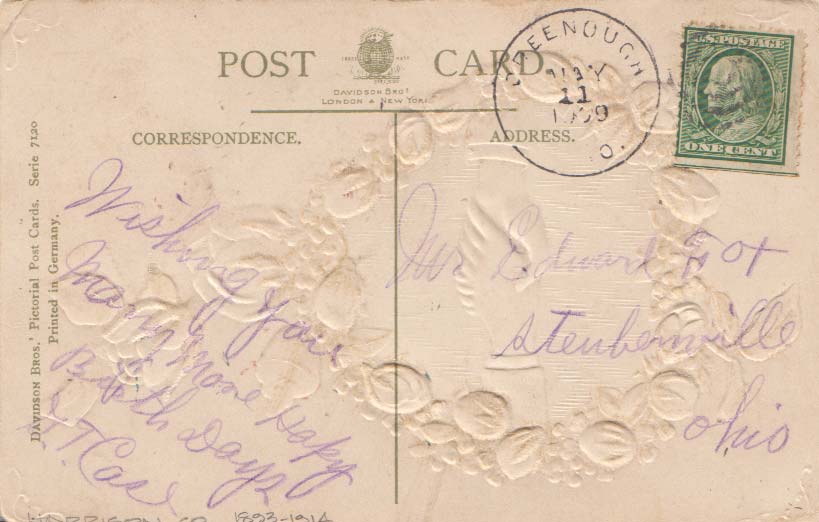 POST CARD.
TRADE MARK
DAVIDSON BROS
LONDON & NEW YORK
CORRESPONDENCE.
ADDRESS.
GREENOUGH
MAY
11
1909
O.
U.S. POSTAGE
ONE CENT
DAVIDSON BROS.' Pictorial Post Cards. Serie 7120
Printed in Germany.
Wishing You
Many More Hapy
Birth Days
T. Case
Mr Edward
Steubenville
Ohio
HARRISON CO. 1893-1914